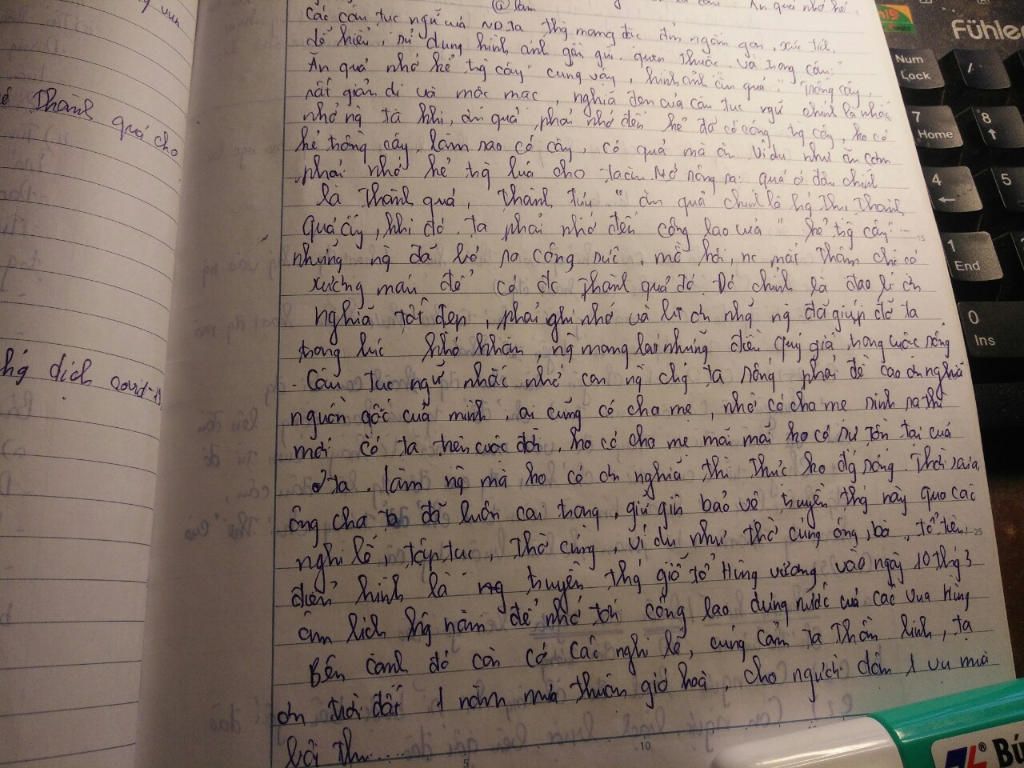 @ làm
Ăn quả nhớ kẻ
Các câu tục ngữ của ND ta thg mang đặc ngắn gọn, xúc tích,
dễ hiểu, sử dụng hình ảnh gần gũi, quen thuộc và trong câu
Ăn quả nhớ kẻ trg cây" cũng vậy, hình ảnh "ăn quả" "trồng cây"
rất giản dị và mộc mạc, nghĩa đen của câu tục ngữ chính là nhắc
nhở ng ta khi, ăn quả, phải nhớ đến kẻ đã có công trg cây, ko có
kẻ trồng cây, làm sao có cây, có quả mà ăn ví dụ như ăn cơm
phải nhớ kẻ trg lúa cho ta ăn Mở rộng ra: quả ở đây chính
là thành quả, thành tựu "ăn quả chính là hg thụ thành
quả ấy, khi đó ta phải nhớ đến công lao của "kẻ trg cây"
những ng đã bỏ ra công sức, mồ hôi, nc mắt thậm chí cả
xương máu để có đc thành quả đó Đó chính là đạo lí ơn
nghĩa tốt đẹp, phải ghi nhớ và biết ơn nhg ng đã giúp đỡ ta
trong lúc khó khăn, ng mang lại những điều quý giá trong cuộc sống
- Câu tục ngữ nhắc nhở con ng chg ta sống phải đề cao ơn nghĩa
nguồn gốc của mình, ai cũng có cha mẹ, nhờ có cha mẹ sinh ra thì
mới có ta trên cuộc đời, ko có cha mẹ mãi mãi ko có sự tồn tại của
ta. làm ng mà ko có ơn nghĩa thì thức ko đg sống. Thời xưa
ông cha ta đã luôn coi trọng, giữ gìn bảo vệ truyền thg này qua các
nghi lễ, tập tục, thờ cúng, ví dụ như thờ cúng ông bà, tổ tiên
điển hình là ng truyền thg giỗ tổ Hùng vương, vào ngày 10 thg 3
âm lịch hg năm để nhớ tới công lao dựng nước của các vua Hùng
Bên cạnh đó còn có các nghi lễ, cúng cảm tạ thần linh, tạ
ơn trời đất 1 năm mưa thuận gió hoà, cho người dân 1 vụ mùa
bội thu.....
thành quả cho
hg dịch covid-19
Fühle
Num
Lock
/
7
Home
8
4
5
1
End
0
Ins
Bú
15
25
5
10